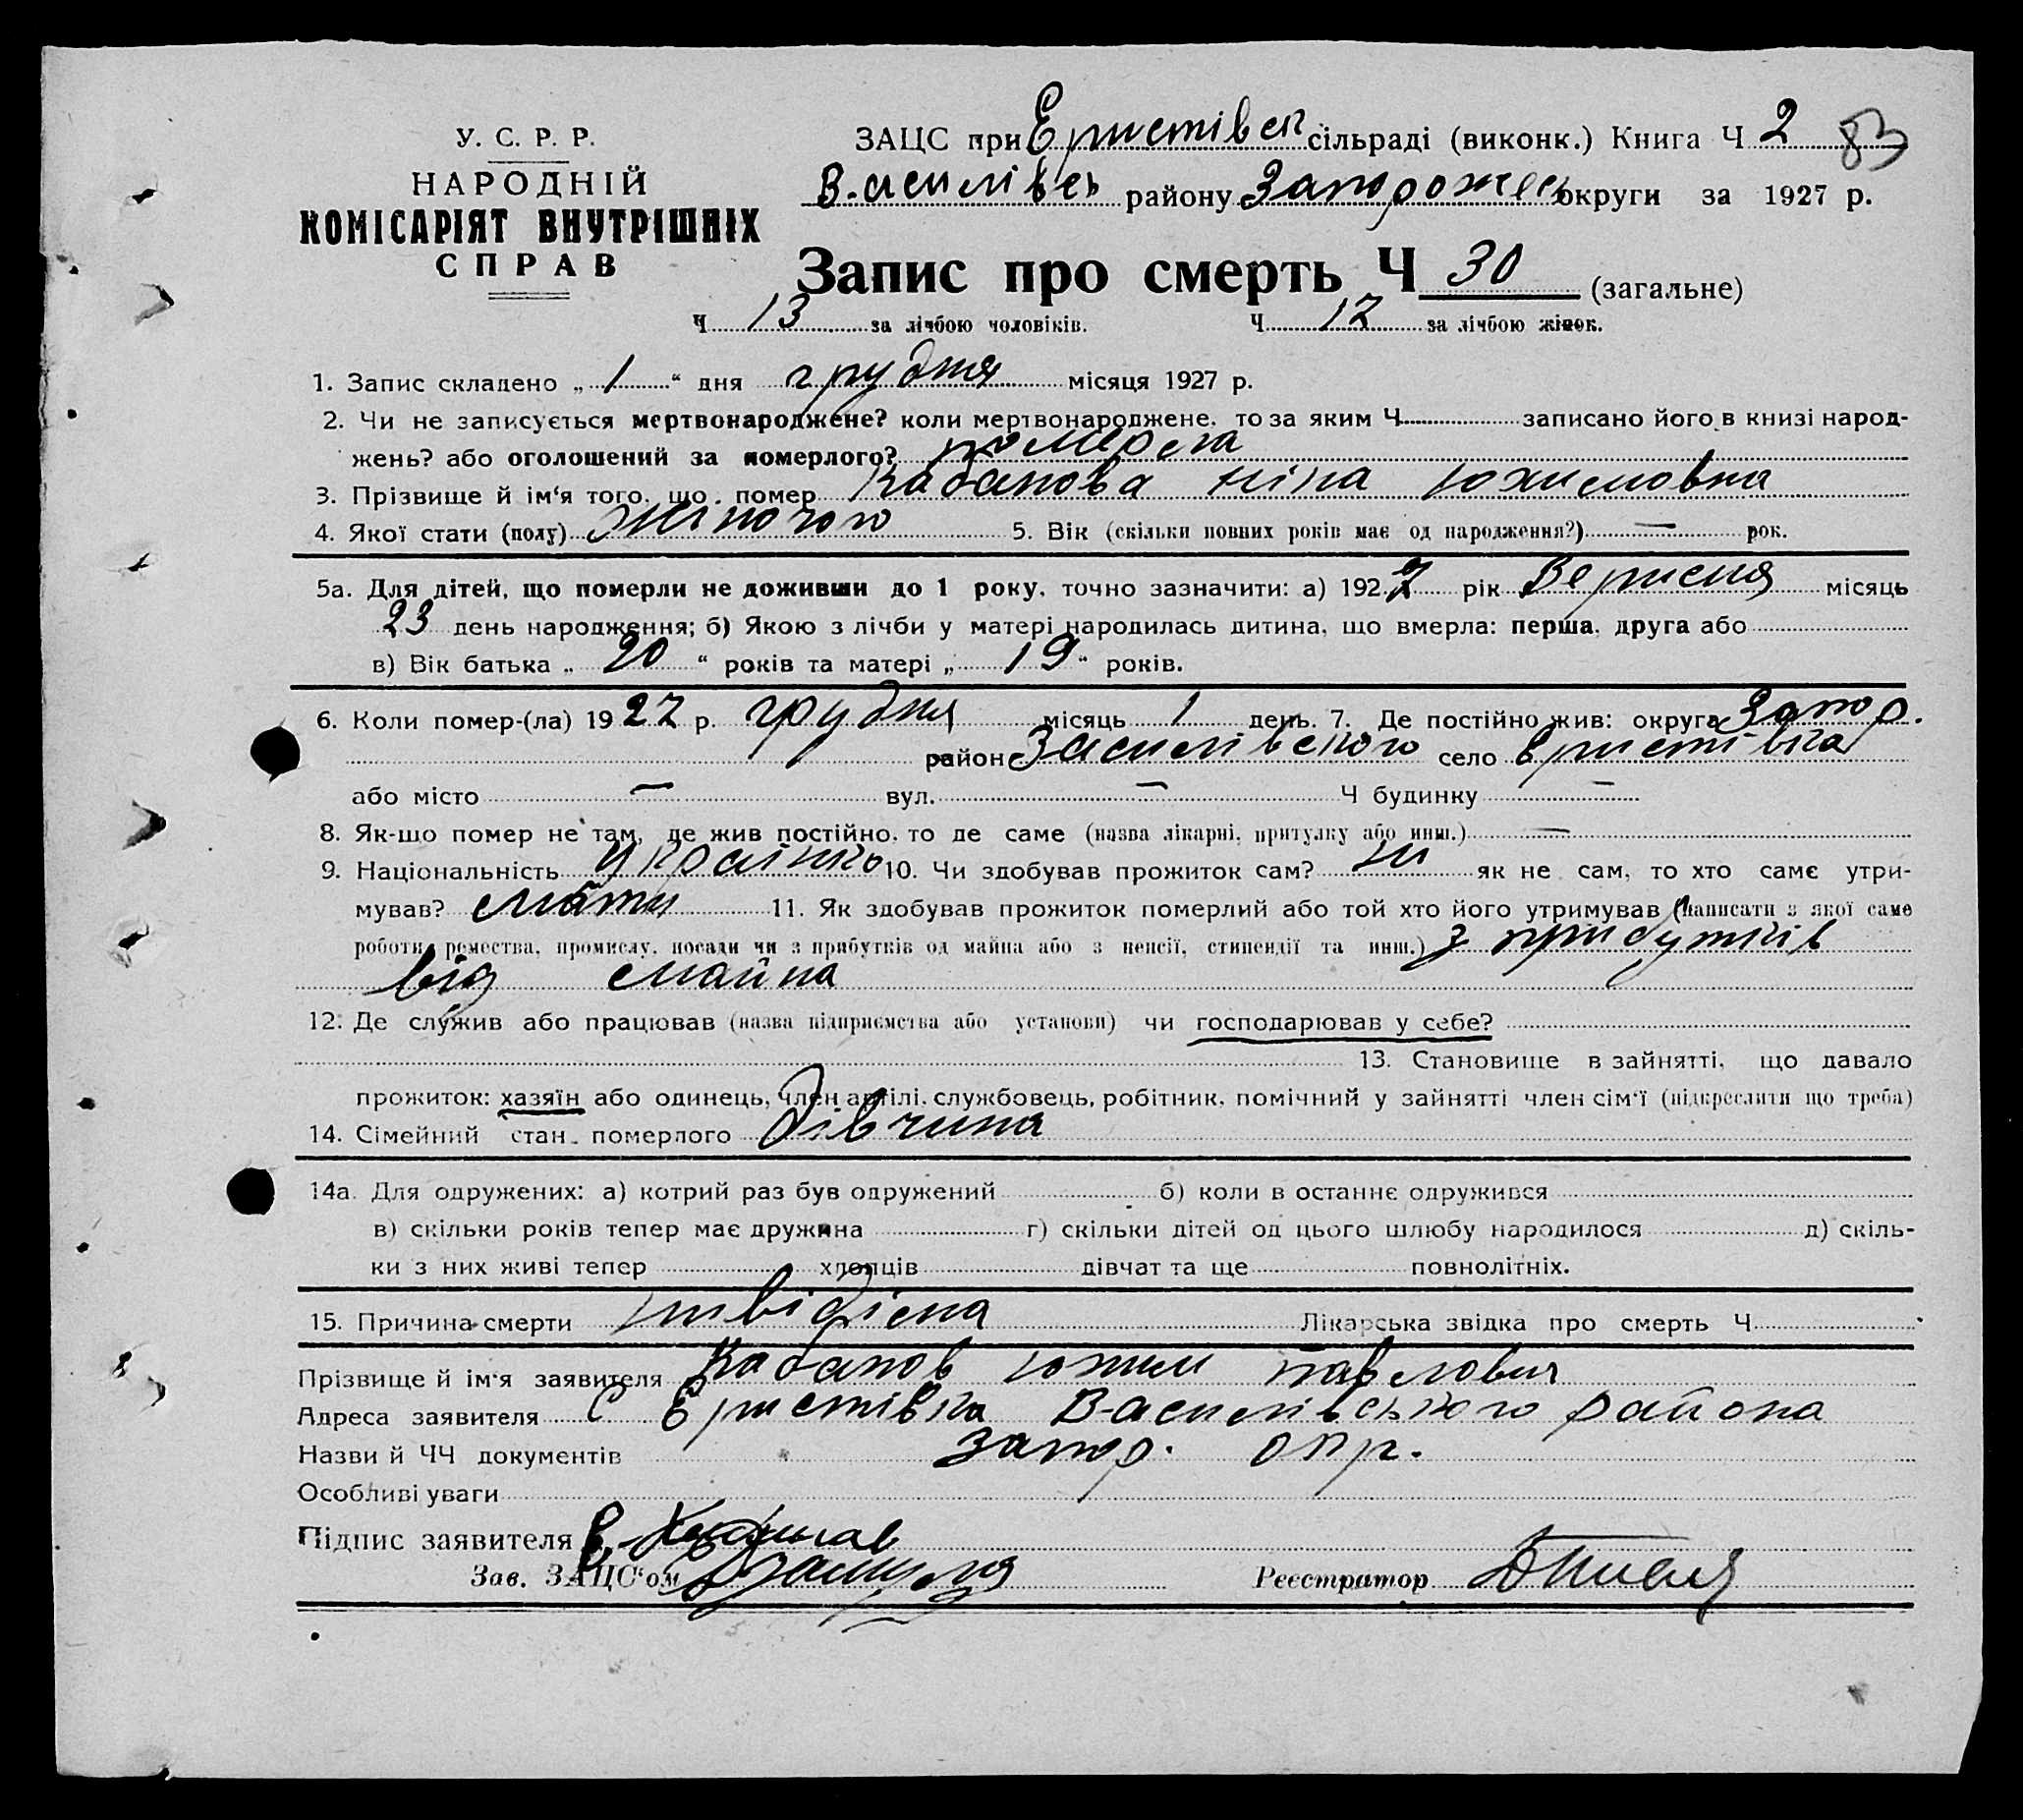 У. С. Р. Р.
НАРОДНІЙ
КОМІСАРІЯТ ВНУТРІШНІХ
СПРАВ
ЗАЦС при Еристівск сільраді (виконк.) Книга Ч 2 83
Василівсь району Запорожсь округи за 1927 р.
Запис про смерть Ч 30 (загальне)
Ч 13 за лічбою чоловіків. Ч 17 за лічбою жінок.
1. Запис складено „ 1 “ дня грудня місяця 1927 р.
2. Чи не записується мертвонароджене? коли мертвонароджене, то за яким Ч записано його в книзі народ-
жень? або оголошений за померлого? померла
3. Прізвище й ім‘я того, що помер Кабанова Ніна Юхимовна
4. Якої стати (полу) жіночого 5. Вік (скільки повних років має од народження?) — рок.
5а. Для дітей, що померли не доживши до 1 року, точно зазначити: а) 1927 рік Вересня місяць
23 день народження; б) Якою з лічби у матері народилась дитина, що вмерла: перша, друга або
в) Вік батька „ 20 “ років та матері „ 19 “ років.
6. Коли помер-(ла) 1927 р. грудня місяць 1 день. 7. Де постійно жив: округа Запор.
район Василівського село Еристівка
або місто — вул. — Ч будинку —
8. Як-що помер не там, де жив постійно, то де саме (назва лікарні, притулку або инш.) —
9. Національність українка 10. Чи здобував прожиток сам? ні як не сам, то хто саме утри-
мував? мати 11. Як здобував прожиток померлий або той хто його утримував (написати з якої саме
роботи, ремества, промислу, посади чи з прибутків од майна або з пенсії, стипендії та инш.) з прибутків
від майна
12. Де служив або працював (назва підприємства або установи) чи господарював у себе?
13. Становище в зайнятті, що давало
прожиток: хазяїн або одинець, член артілі, службовець, робітник, помічний у зайнятті член сім‘ї (підкреслити що треба)
14. Сімейний стан померлого дівчина
14а. Для одружених: а) котрий раз був одружений б) коли в останнє одружився
в) скільки років тепер має дружина г) скільки дітей од цього шлюбу народилося д) скіль-
ки з них живі тепер хлопців дівчат та ще повнолітніх.
15. Причина смерти Лікарська звідка про смерть Ч
Прізвище й ім‘я заявителя Кабанов Юхим Павлович
Адреса заявителя С Еристівка Василівського района
Назви й ЧЧ документів Запор. окр.
Особливі уваги
Підпис заявителя
Зав. ЗАЦС‘ом Реєстратор